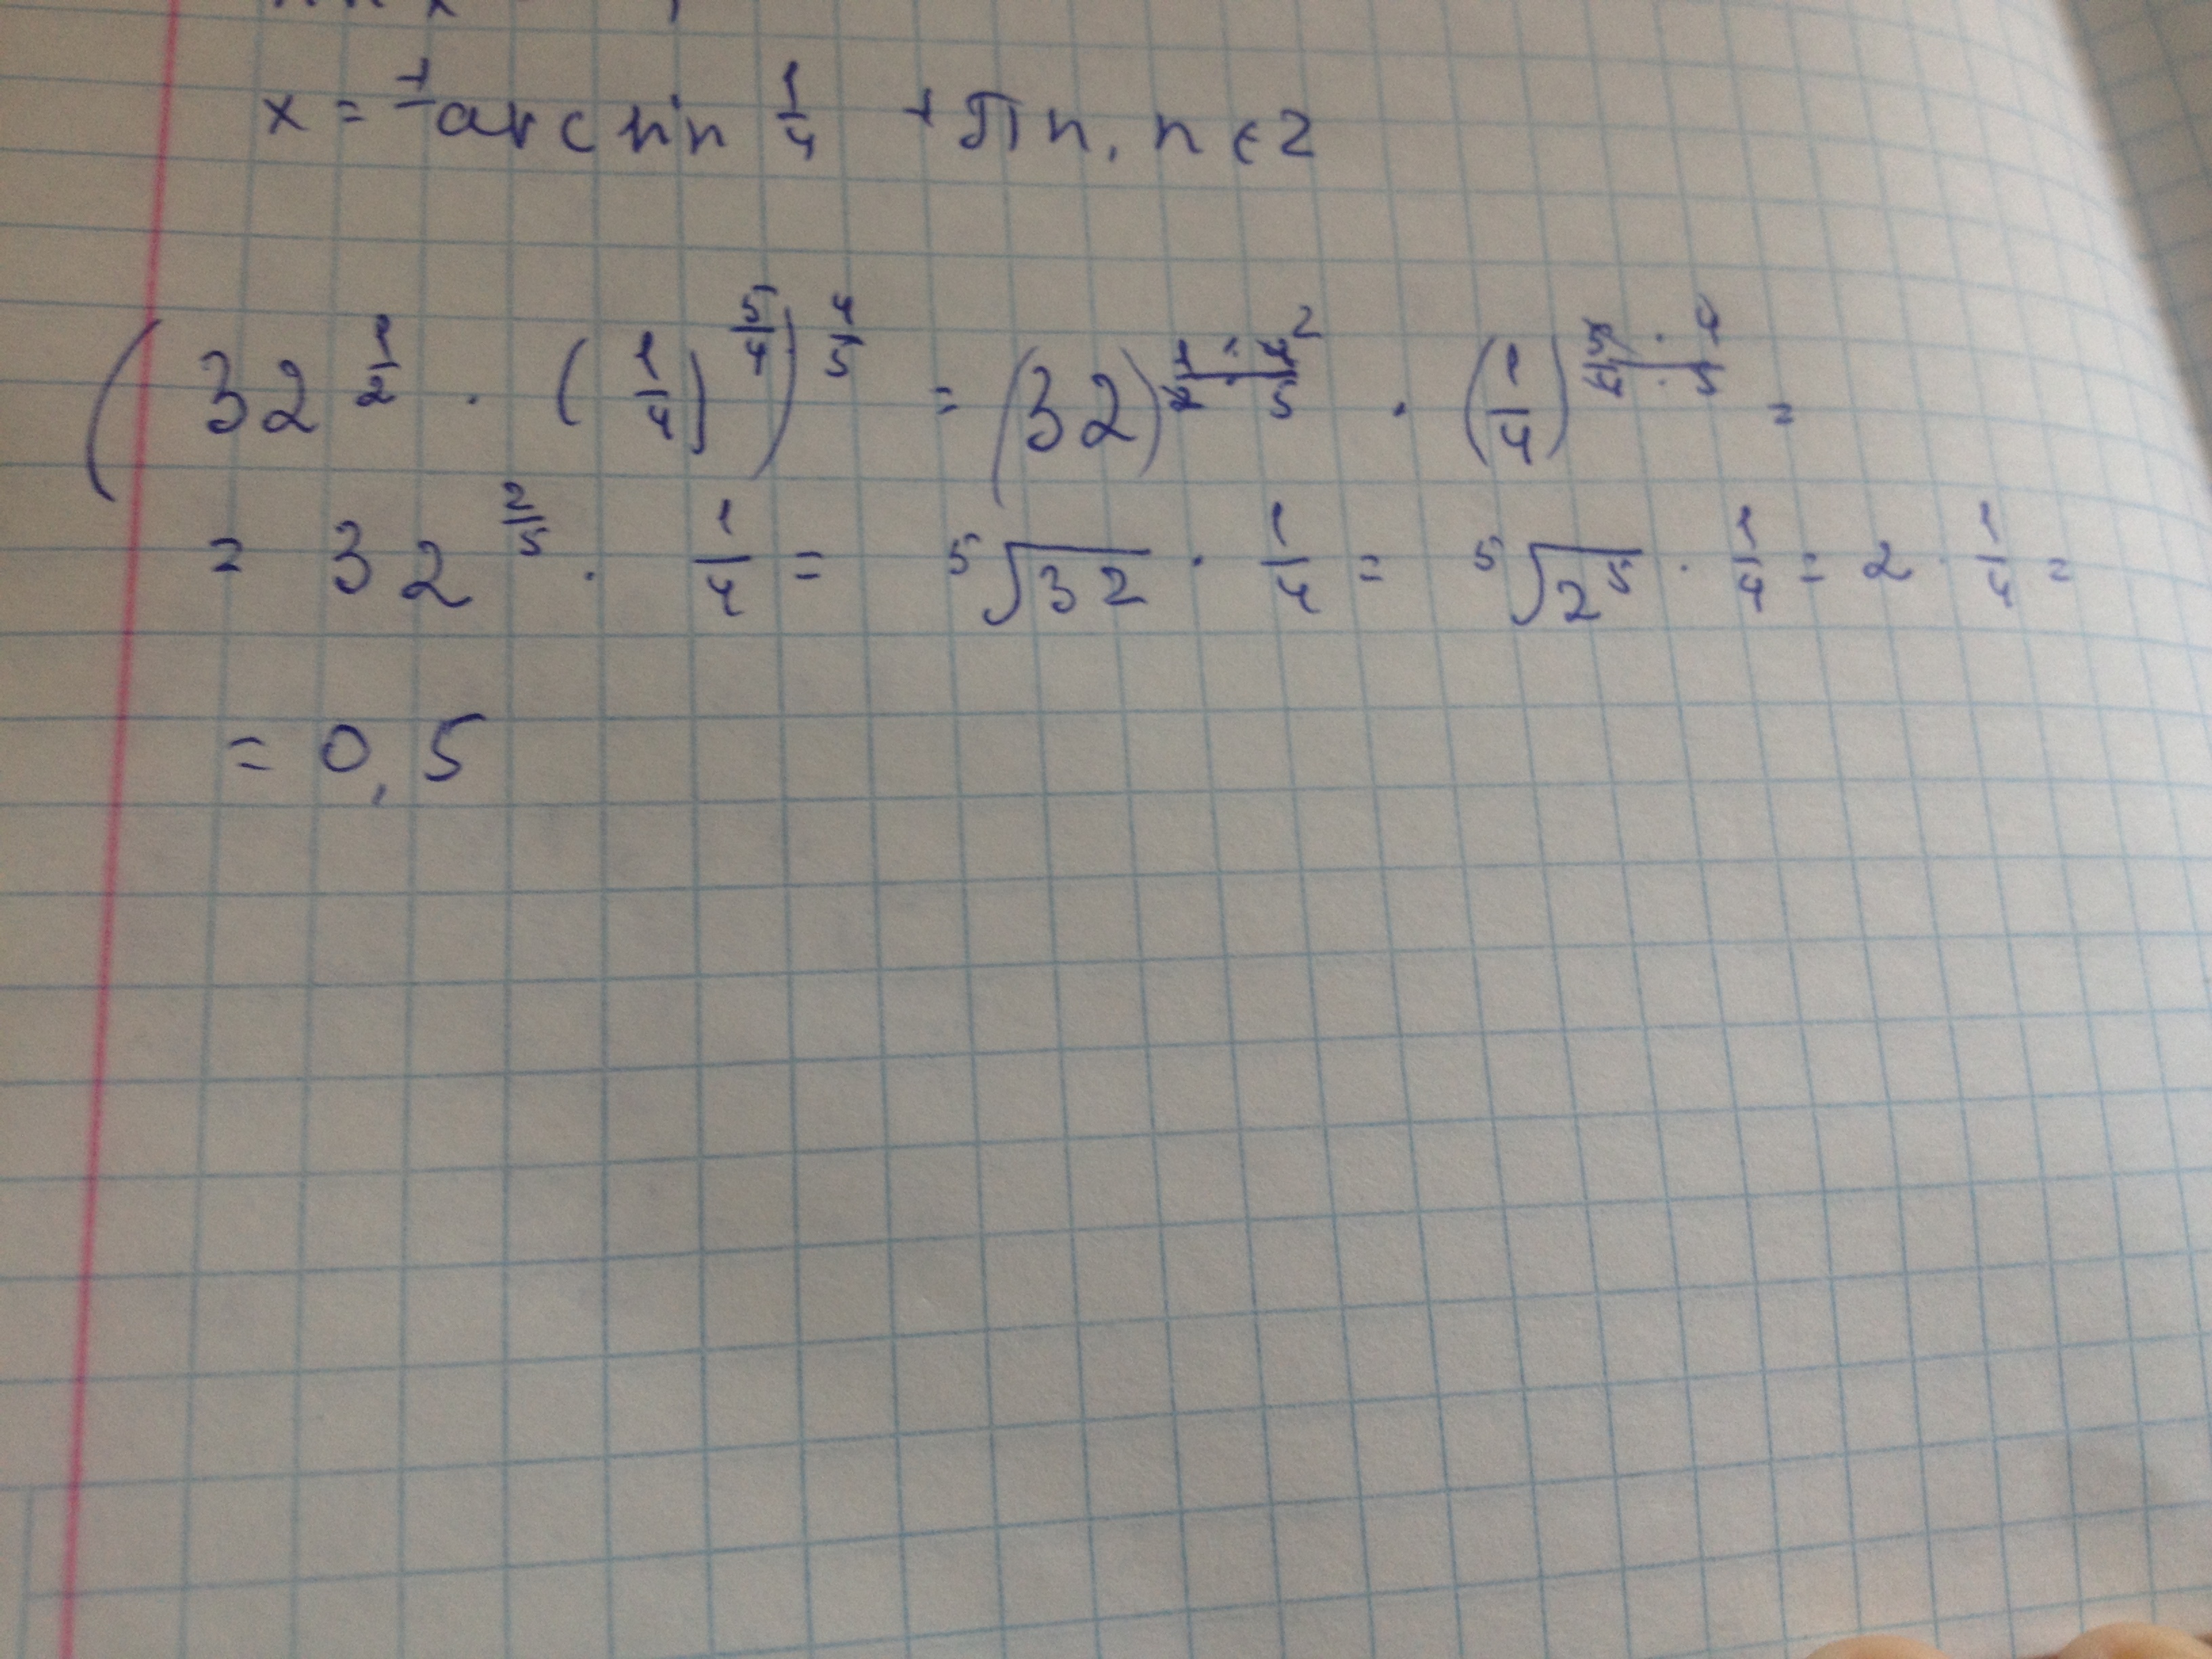 x = ± arcsin 1/4 + πn, n ∈ Z
(32^(1/2) · (1/4)^(5/4))^(4/5) = (32)^((1·4²)/(2·5)) · (1/4)^((5·4)/(4·5)) =
= 32^(2/5) · 1/4 = ⁵√32 · 1/4 = ⁵√2⁵ · 1/4 = 2 · 1/4 =
= 0,5